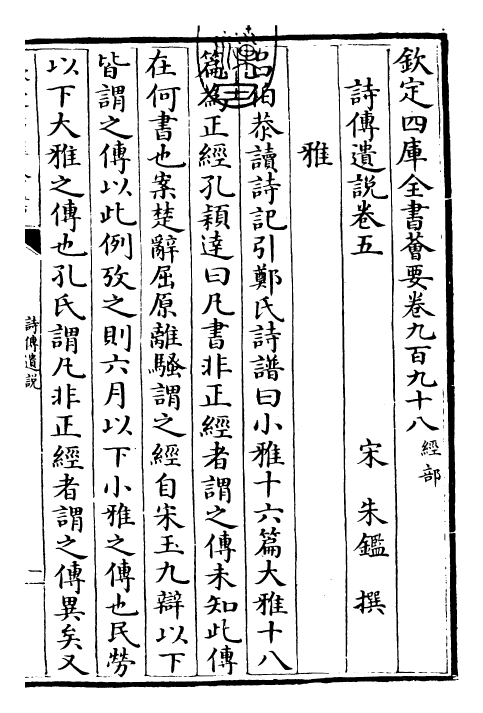 欽定四庫全書薈要卷九百九十八 經部
詩傳遺說卷五
宋 朱鑑 撰
雅
呂伯恭讀詩記引鄭氏詩譜曰小雅十六篇大雅十八
篇為正經孔穎達曰凡書非正經者謂之傳未知此傳
在何書也案楚辭屈原離騷謂之經自宋玉九辯以下
皆謂之傳以此例攷之則六月以下小雅之傳也民勞
以下大雅之傳也孔氏謂凡非正經者謂之傳異矣又
詩傳遺説